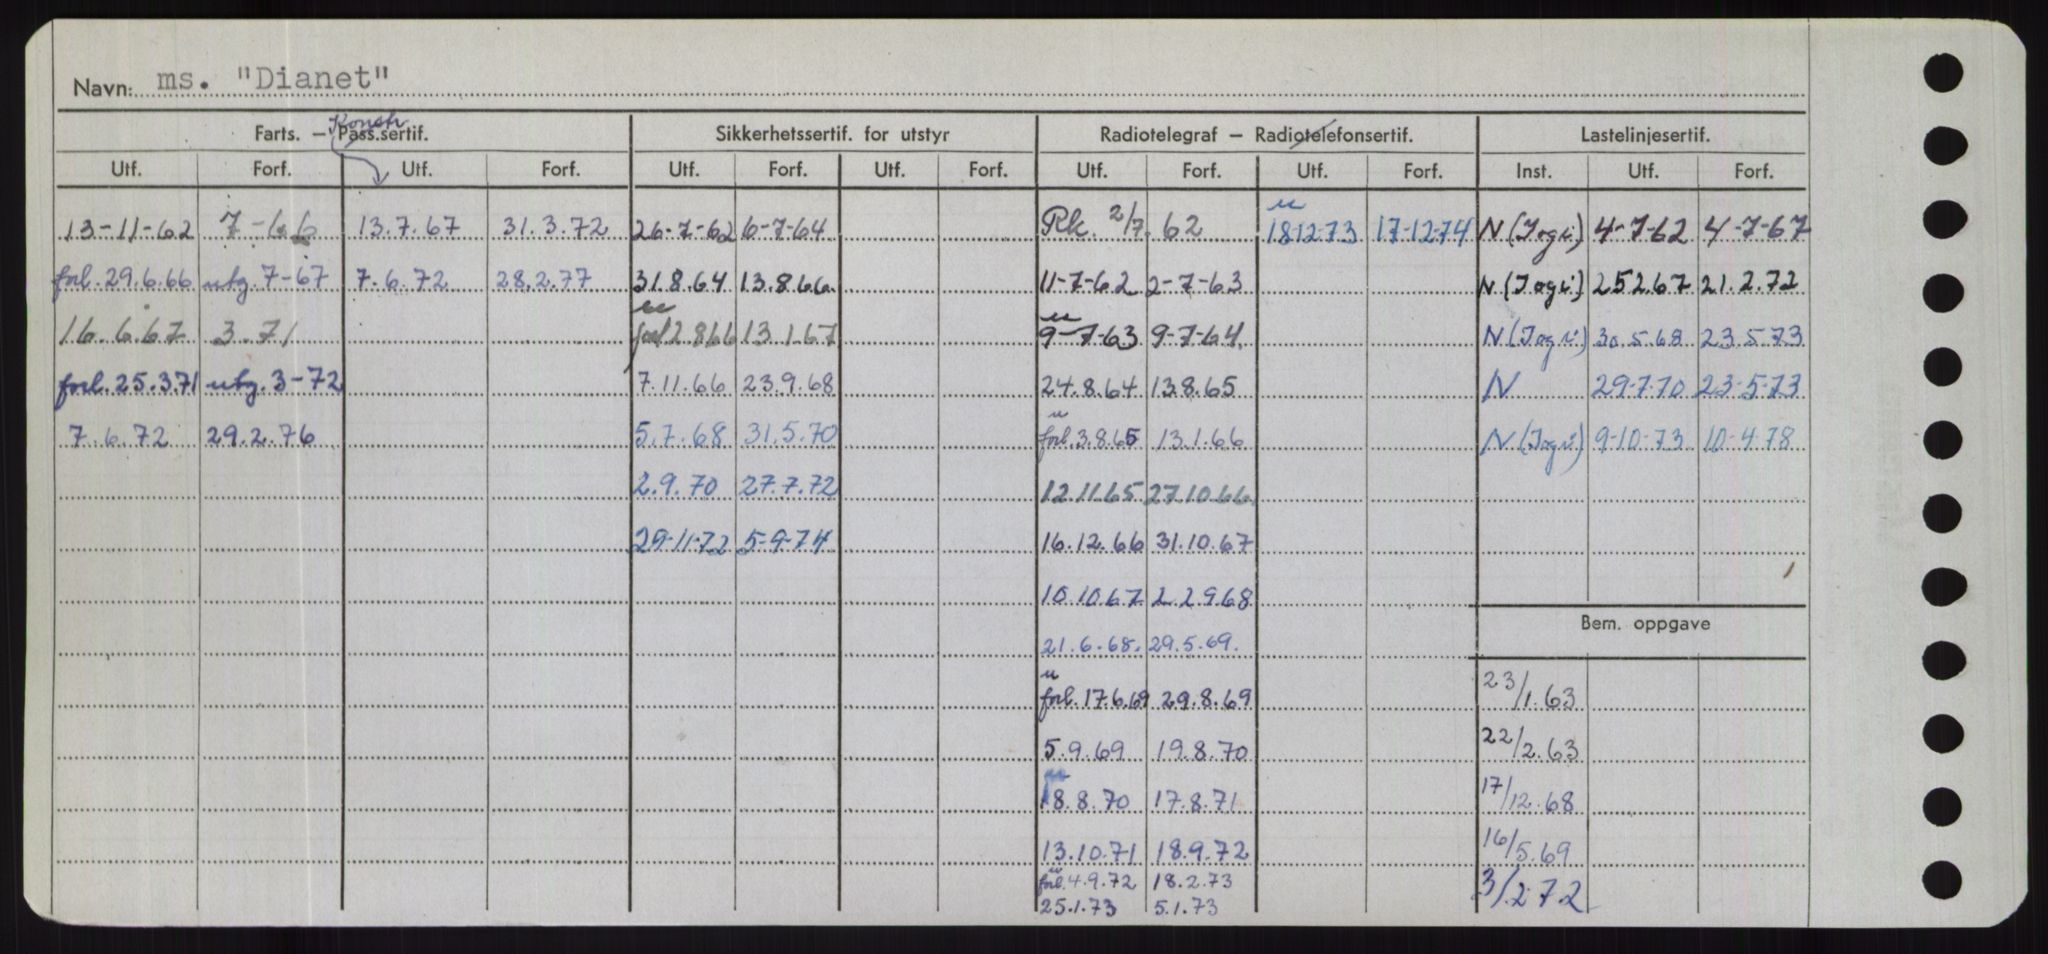 Navn: ms. "Dianet"
Konstr
Farts. – Pass.sertif. Sikkerhetssertif. for utstyr Radiotelegraf – Radiotelefonsertif. Lastelinjesertif.
Utf. Forf. Utf. Forf. Utf. Forf. Utf. Forf. Utf. Forf. Utf. Forf. Inst. Utf. Forf.
13-11-62 7-66 13.7.67 31.3.72 26-7-62 6-7-64 Rk. 2/7.62 u 18-12-73 17-12-74 N (Jogi) 4-7-62 4-7-67
forl. 29.6.66 utg. 7-67 7.6.72 28.2.77 31.8.64 13.8.66. 11-7-62 2-7-63 N (Jogi) 25267 21.2.72
16.6.67 3.71 u forl 2.8.66 13.1.67 u 9-7-63 9-7-64. N (Jogi) 30.5.68 23.5.73
forl. 25.3.71 utg. 3-72 7.11.66 23.9.68 24.8.64 13.8.65 N 29-7-70 23-5-73
7.6.72 29.2.76 5.7.68 31.5.70 u forl. 3.8.65 13.1.66 N (Jogi) 9-10-73 10-4-78
2.9.70 27.7.72 12.11.65 27.10.66.
29-11-72 5-9-74 16.12.66 31.10.67
10.10.67 22.9.68
21.6.68. 29.5.69. Bem. oppgave
u forl. 17.6.69 29.8.69 23/1.63
5.9.69 19.8.70 22/2.63
u 18.8.70 17.8.71 17/12.68
13.10.71 18.9.72 16/5.69
u forl. 4.9.72 18.2.73 3/2 72
25.1.73 5.1.73